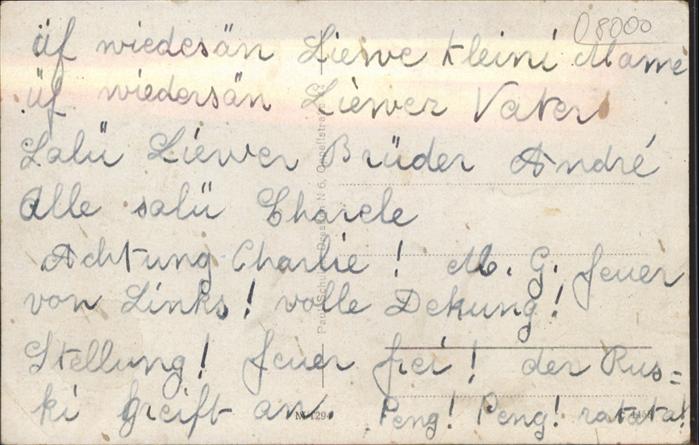 08000
üf wiedesän Liewe kleini Mame
üf wiedersän Liewer Vater
Salü Liewer Brüder André
Alle salü Charele
Achtung Charlie! M. G. feuer
von Links! volle Dekung!
Stellung! feuer frei! der Rus=
ki greift an Peng! Peng! ratata!